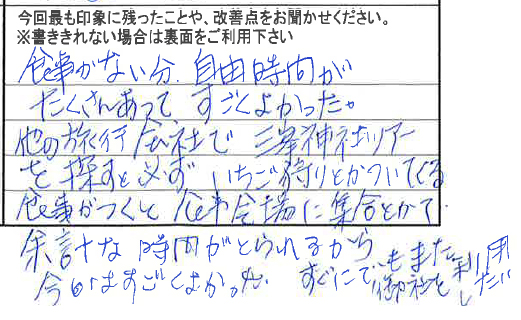 今回最も印象に残ったことや、改善点をお聞かせください。
※書ききれない場合は裏面をご利用下さい
食事がない分、自由時間が
たくさんあって、すごくよかった。
他の旅行会社で 三峯神社ツアー
を探すと必ず いちご狩りとかついてくる
食事がつくと 食事会場に集合とかで、
余計な時間がとられるから
今回はすごくよかった。 すぐにでもまた利用
御社を したい